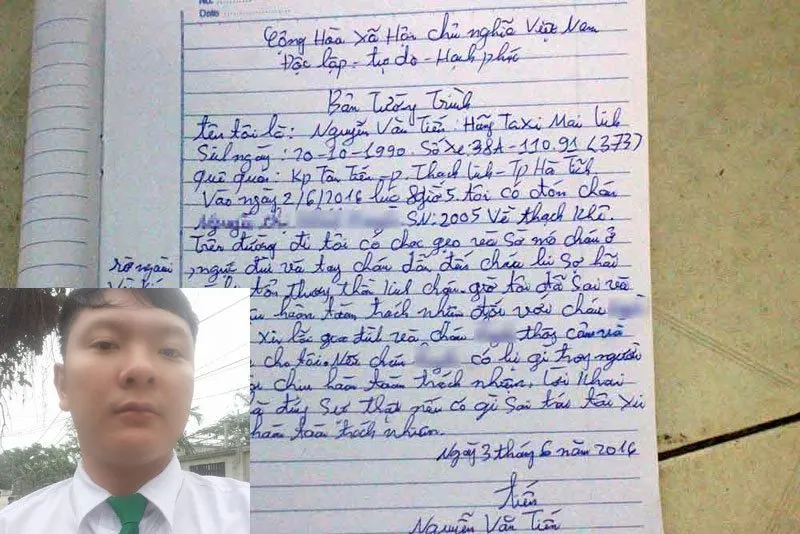 No.
Date
Cộng Hòa Xã Hội chủ nghĩa Việt Nam
Độc lập - tự do - Hạnh phúc
Bản Tường Trình
tên tôi là: Nguyễn Văn Tiến: Hãng Taxi Mai Linh
Sinh ngày: 20-10-1990. Số xe: 38A-110.91 (373)
quê quán: Kp Tân Tiến - p. Thạch Linh - Tp Hà Tĩnh
Vào ngày 2/6/2016 lúc 8giờ5. tôi có đón cháu
Nguyễn Th SN: 2005 Về thạch Khê.
Trên đường đi tôi có chọc gẹo và Sờ mó cháu ở
rõ ngoài
ngực đùi và tay cháu dẫn đến cháu bị Sợ hãi
tổn thương thân thể giờ tôi đã Sai và
hoàn toàn trách nhiệm đối với cháu
Xin lỗi gia đình và cháu thông cảm và
cho tôi. Nếu cháu có bị gì trong người
chịu hoàn toàn trách nhiệm, lời khai
là đúng Sự thật nếu có gì Sai trái tôi xin
hoàn toàn trách nhiệm.
Ngày 3 tháng 6 năm 2016
tiến
Nguyễn Văn Tiến